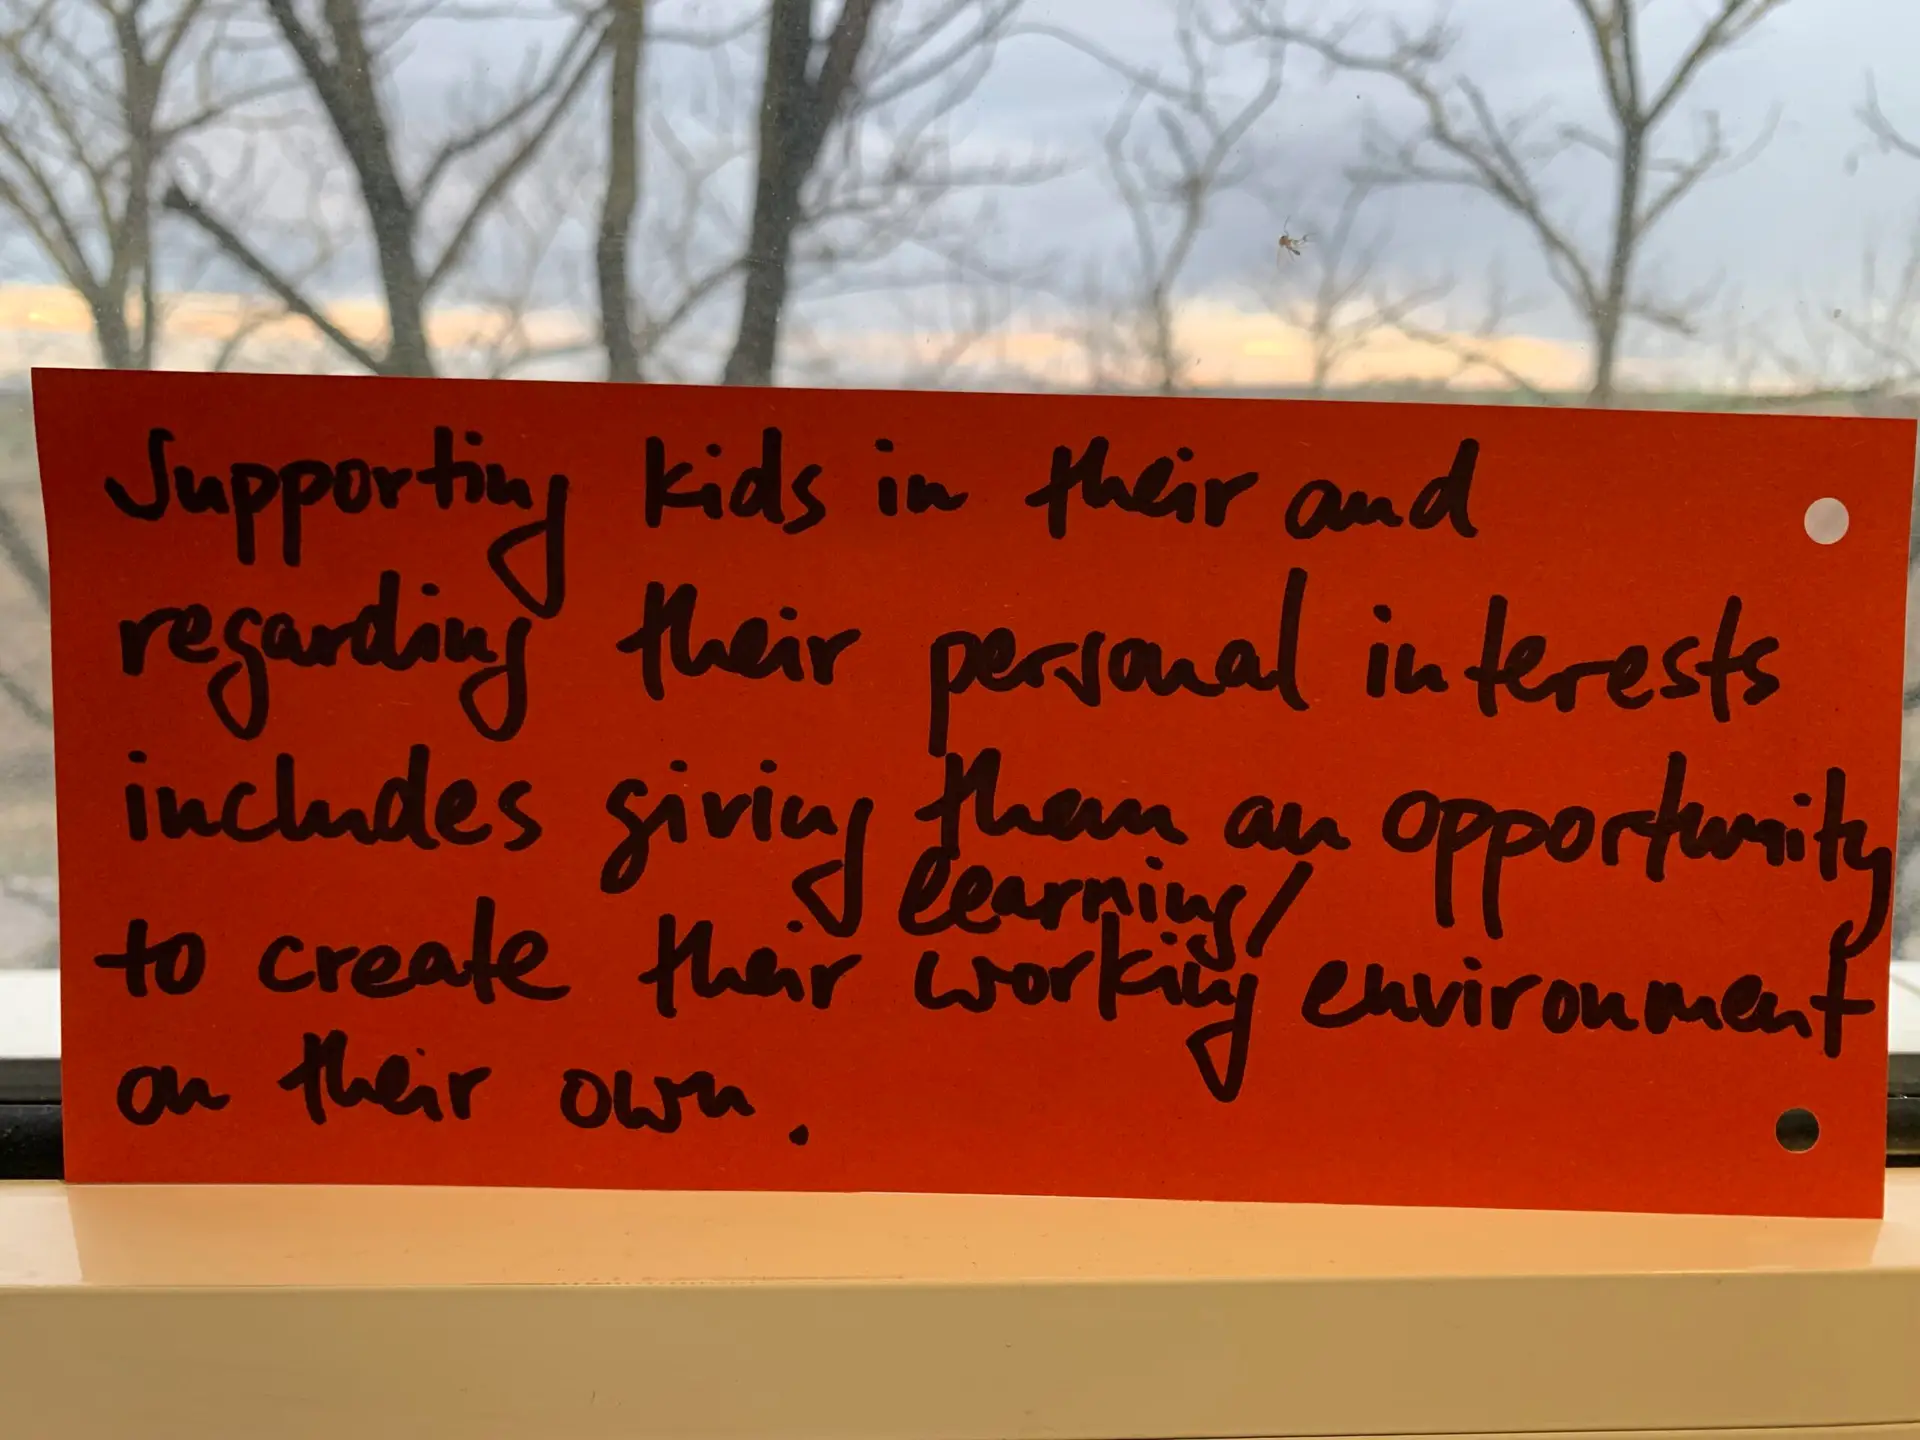 Supporting kids in their and
regarding their personal interests
includes giving them an opportunity
to create their learning/working environment
on their own.